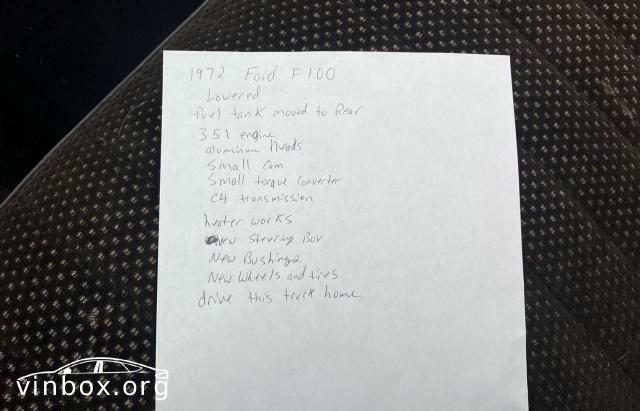 1972 Ford F100
Lowered
fuel tank moved to Rear
351 engine
aluminum Heads
Small Cam
Small torque Converter
C4 transmission
heater works
New Steering Box
New Bushings
New Wheels and tires
drive this truck home
vinbox.org